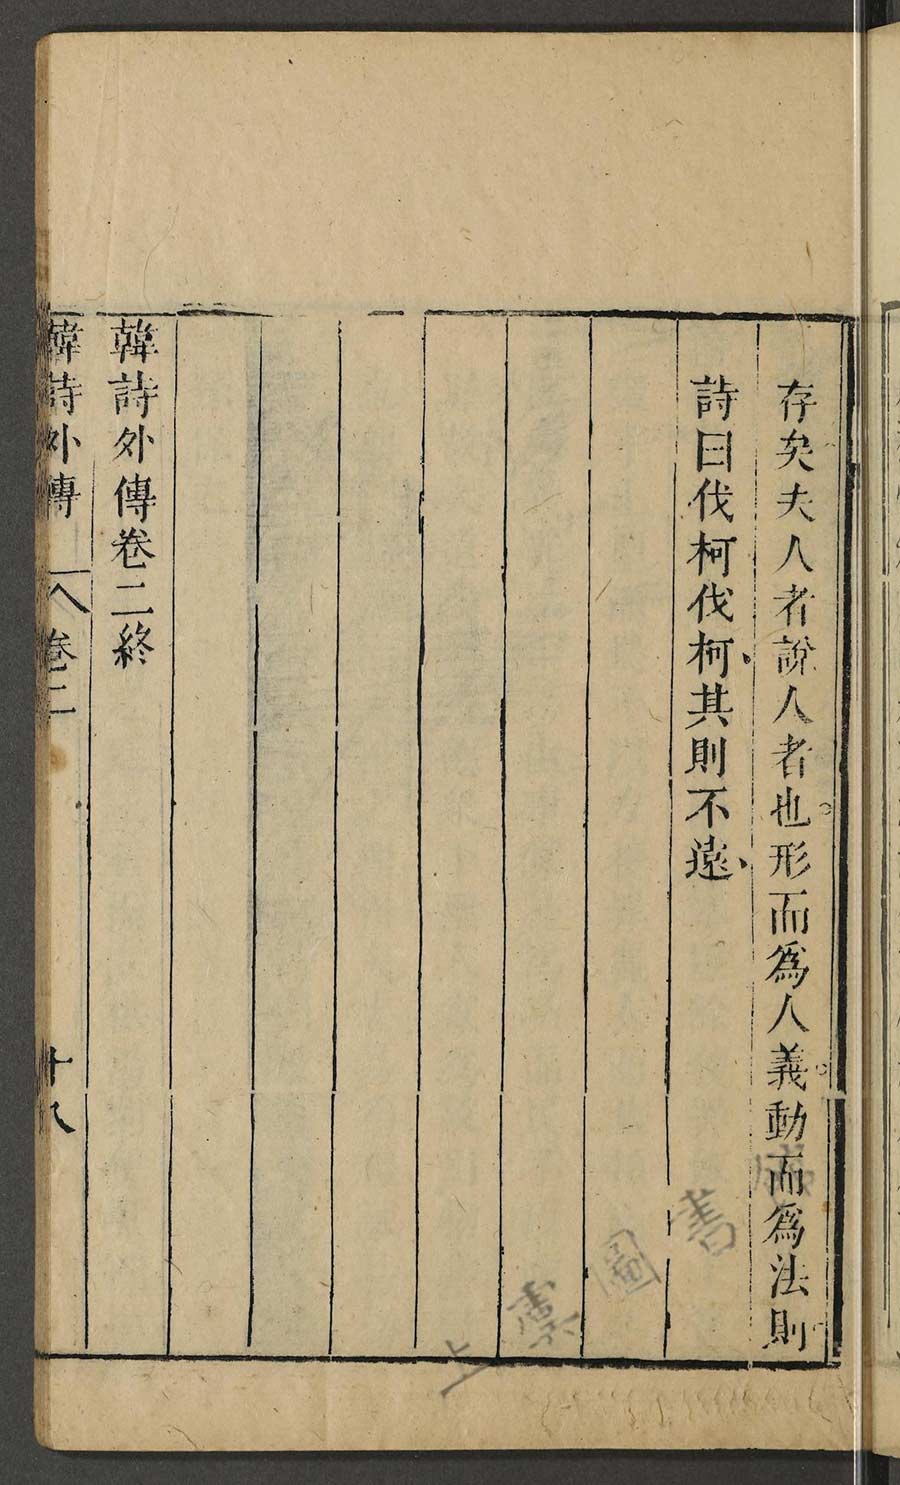 存矣夫人者說人者也形而為人義動而為法則
詩曰伐柯伐柯其則不遠
韓詩外傳卷二終
韓詩外傳 卷二 十八
上虞圖書